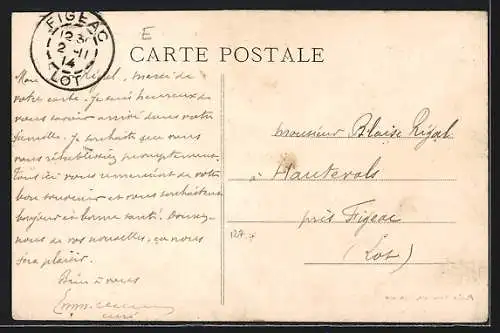 FIGEAC
12 3
2 -11
14
LOT
E
CARTE POSTALE
Mon Rigal, merci de
votre carte. Je suis heureux de
vous savoir arrivé dans votre
famille. Je souhaite que vous
vous rétablissiez promptement.
Tous ici vous remercient de votre
bon souvenir et vous souhaitent
bonne santé. Donnez-
nous de vos nouvelles, ça nous
fera plaisir.
Bien à vous
curé
Monsieur Blaise Rigal
à Hauterols
près Figeac
(Lot)